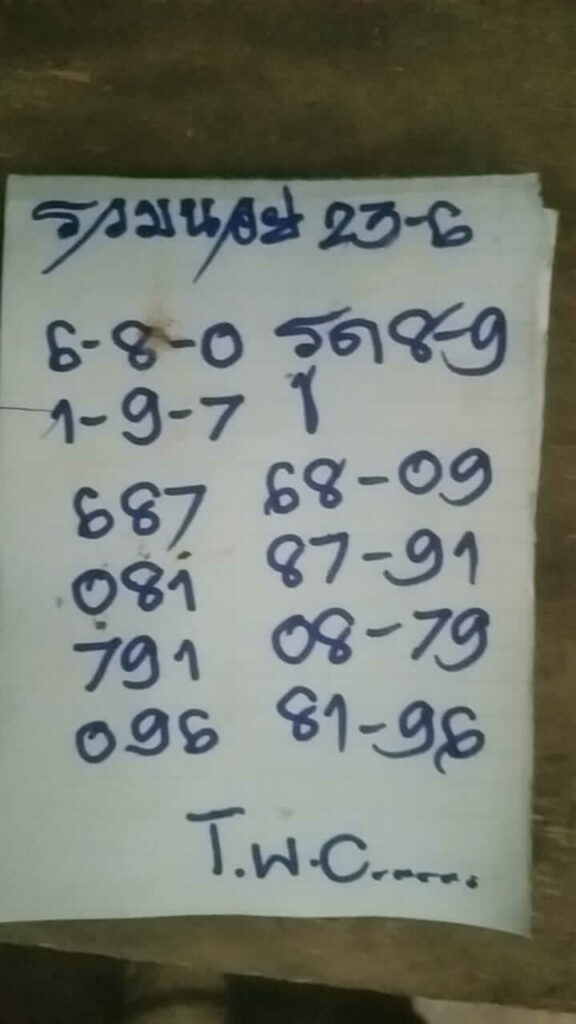 รวมน้อย 23-6
6-8-0 รูด 8-9
1-9-7
687 68-09
081 87-91
791 08-79
096 81-96
T.W.C.......